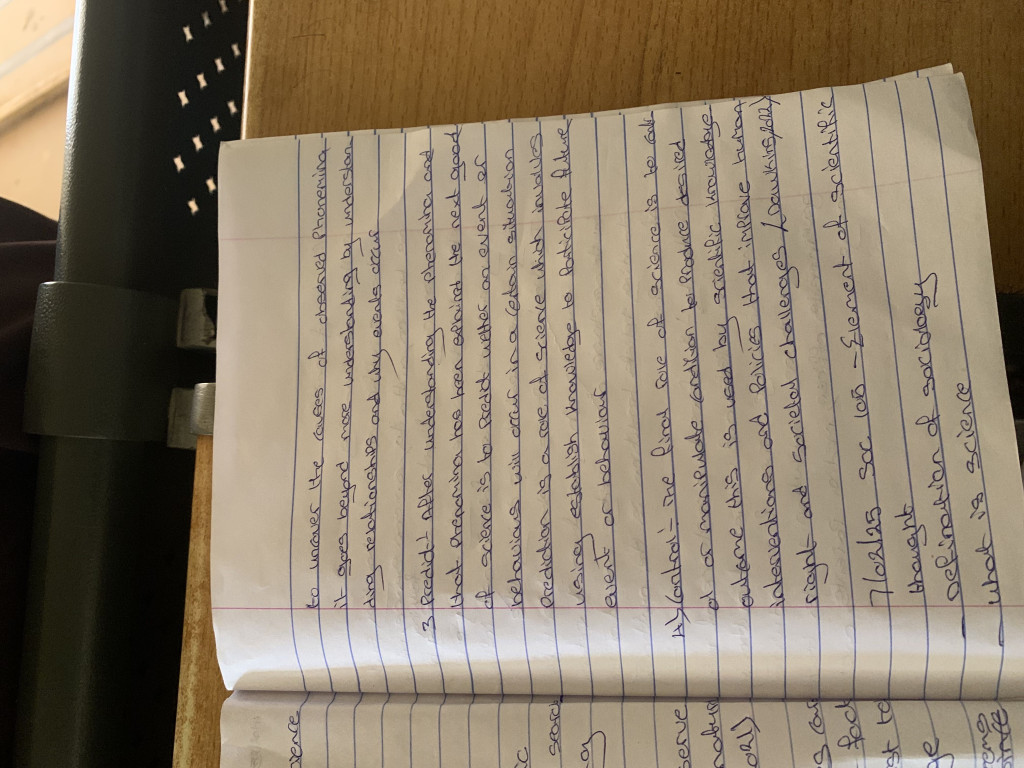 to uncover the causes of observed Phenomina
it goes beyond more understanding by understan
ding relationships and why events occur
3 Predict- After understanding the Phenomina and
that Phenomina has been explaind the next goad
of science is to Predict wetter an event or
behavious will occur in a certain situation
Prediction is a role of science which involves
using establish knowledge to Participate future
event or behaviour
4) Control - The final role of science is to con
ol or manipulate condition to Produce desired
outcome this is used by scientific knowledge
interventions and Policies that improve human
right and societal challenges
7/02/25 soc 105 - Element of scientific
thought
Defination of sociology
What is science
ience
ic
searc
gy
serve
natur
ory)